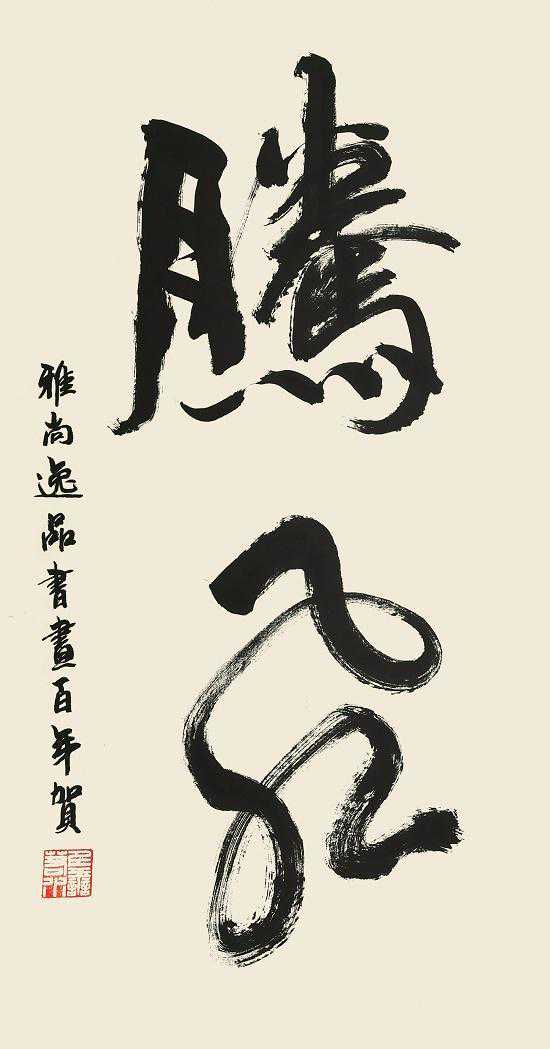 騰飛
雅尚逸品書畫百年賀